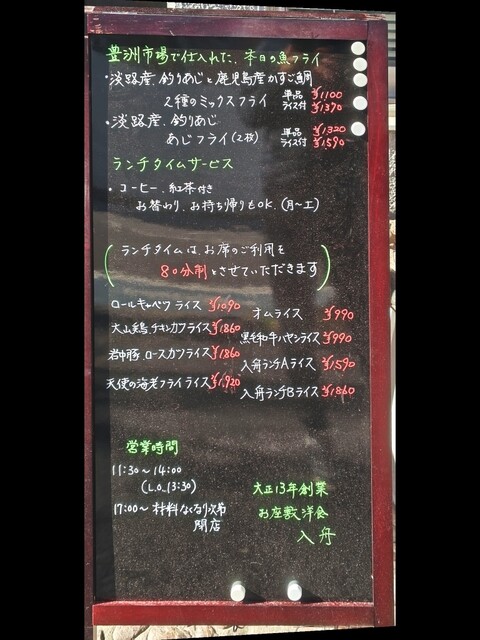 豊洲市場で仕入れた、本日の魚フライ
・淡路産、釣りあじと鹿児島産かすご鯛
2種のミックスフライ 単品 ¥1100
ライス付 ¥1370
・淡路産、釣りあじ
あじフライ(2枚) 単品 ¥1320
ライス付 ¥1590
ランチタイムサービス
・コーヒー、紅茶付き
お替わり、お持ち帰りもOK、(月〜土)
ランチタイムは、お席のご利用を
80分制とさせていただきます
ロールキャベツライス ¥1090
大山鶏チキンカツライス ¥1860
岩中豚、ロースカツライス ¥1860
天使の海老フライライス ¥1,920
オムライス ¥990
黒毛和牛ハヤシライス ¥990
入舟ランチAライス ¥1590
入舟ランチBライス ¥1860
営業時間
11:30〜14:00
(L.O.13:30)
17:00〜材料なくなり次第
閉店
大正13年創業
お座敷洋食
入舟